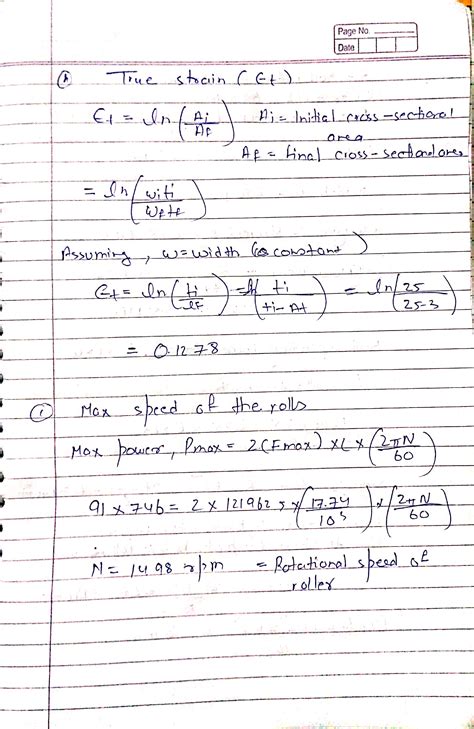 Page No.
Date
(h) True strain (Et)
Et = ln(Ai/Af) Ai = Initial cross-sectional area
Af = final cross-sectional area
= ln(witi/wftf)
Assuming, w = width (is constant)
Et = ln(ti/tf) = ln(ti/ti-Δt) = ln(25/25-3)
= 0.1278
(i) Max speed of the rolls
Max power, Pmax = 2(Fmax) × L × (2πN/60)
91 × 746 = 2 × 121962 × (17.74/10³) × (2πN/60)
N = 1498 rpm = Rotational speed of roller